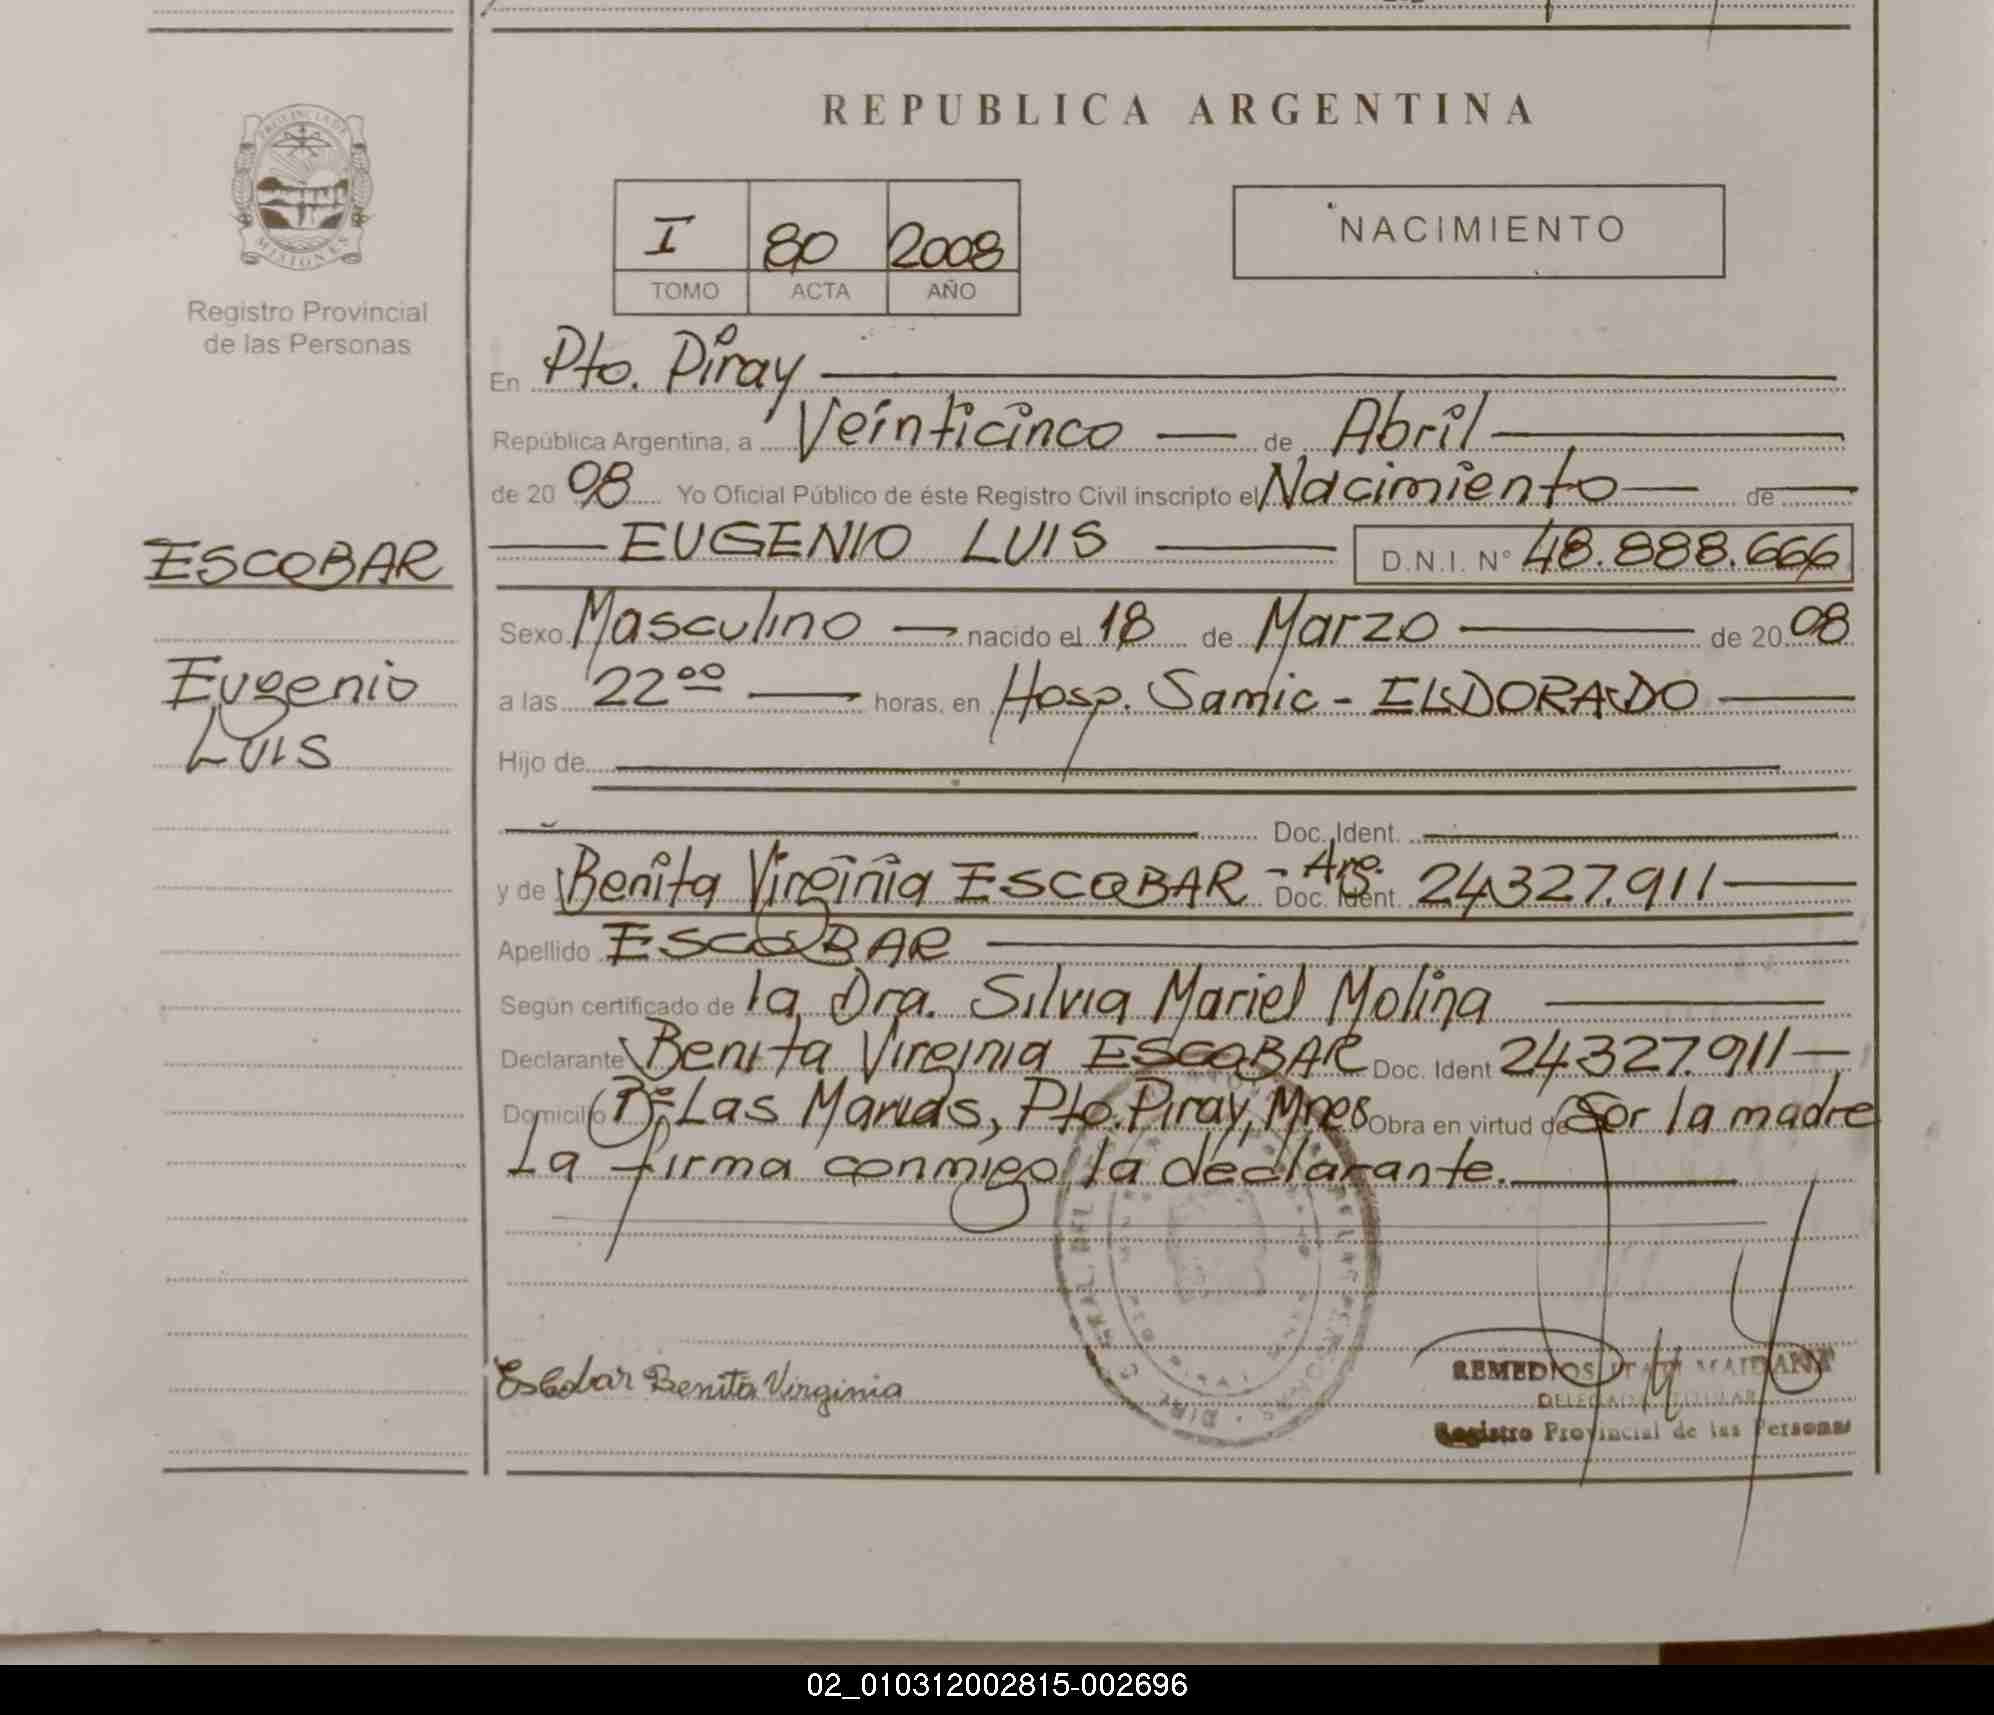 REPUBLICA ARGENTINA
PROVINCIA DE
MISIONES
Registro Provincial
de las Personas
I 80 2008
TOMO ACTA AÑO
NACIMIENTO
En Pto. Piray
República Argentina, a Veinticinco de Abril
de 20 08 Yo Oficial Público de éste Registro Civil inscripto el Nacimiento de
ESCOBAR
Eugenio
Luis
EUGENIO LUIS D.N.I. N° 48.888.666
Sexo Masculino nacido el 18 de Marzo de 20 08
a las 22 00 horas, en Hosp. Samic - ELDORADO
Hijo de
Doc. Ident.
y de Benita Virginia ESCOBAR - Arg. Doc. Ident. 24.327.911
Apellido ESCOBAR
Según certificado de la Dra. Silvia Mariel Molina
Declarante Benita Virginia ESCOBAR Doc. Ident 24.327.911
Domicilio B° Las Marias, Pto. Piray, Mnes Obra en virtud de Ser la madre
La firma conmigo la declarante.
Escobar Benita Virginia
REMEDIOS ITATI MAIDANA
DELEGADA TITULAR
Registro Provincial de las Personas
02_010312002815-002696